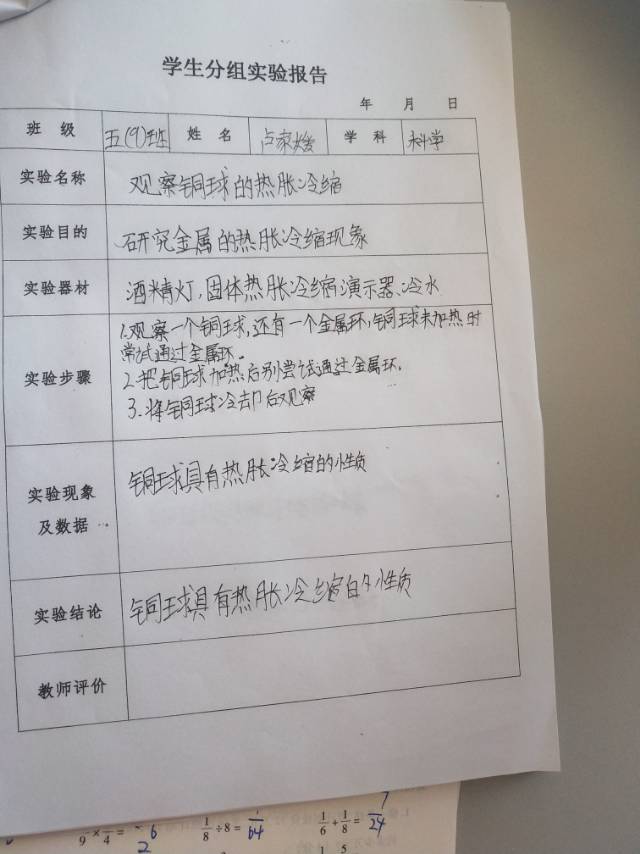 学生分组实验报告
年 月 日
班 级 五(9)班 姓 名 卢家 学 科 科学
实验名称 观察铜球的热胀冷缩
实验目的 研究金属的热胀冷缩现象
实验器材 酒精灯,固体热胀冷缩演示器、冷水
1.观察一个铜球,还有一个金属环,铜球未加热时
尝试通过金属环。
实验步骤 2.把铜球加热后别尝试通过金属环。
3.将铜球冷却后观察
实验现象 铜球具有热胀冷缩的性质
及数据
实验结论 铜球具有热胀冷缩的性质
教师评价
1/8÷8=1/64 1/6+1/8=7/24